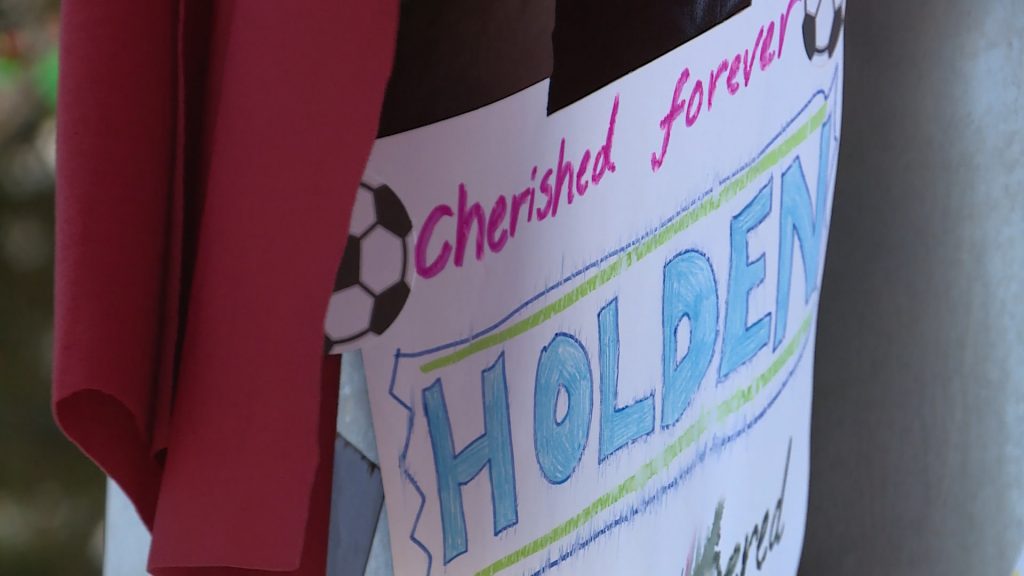 Cherished forever
HOLDEN